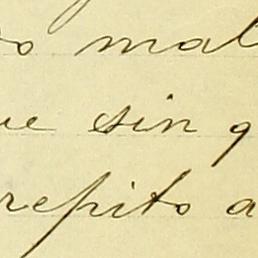 mal
sin q
repito a